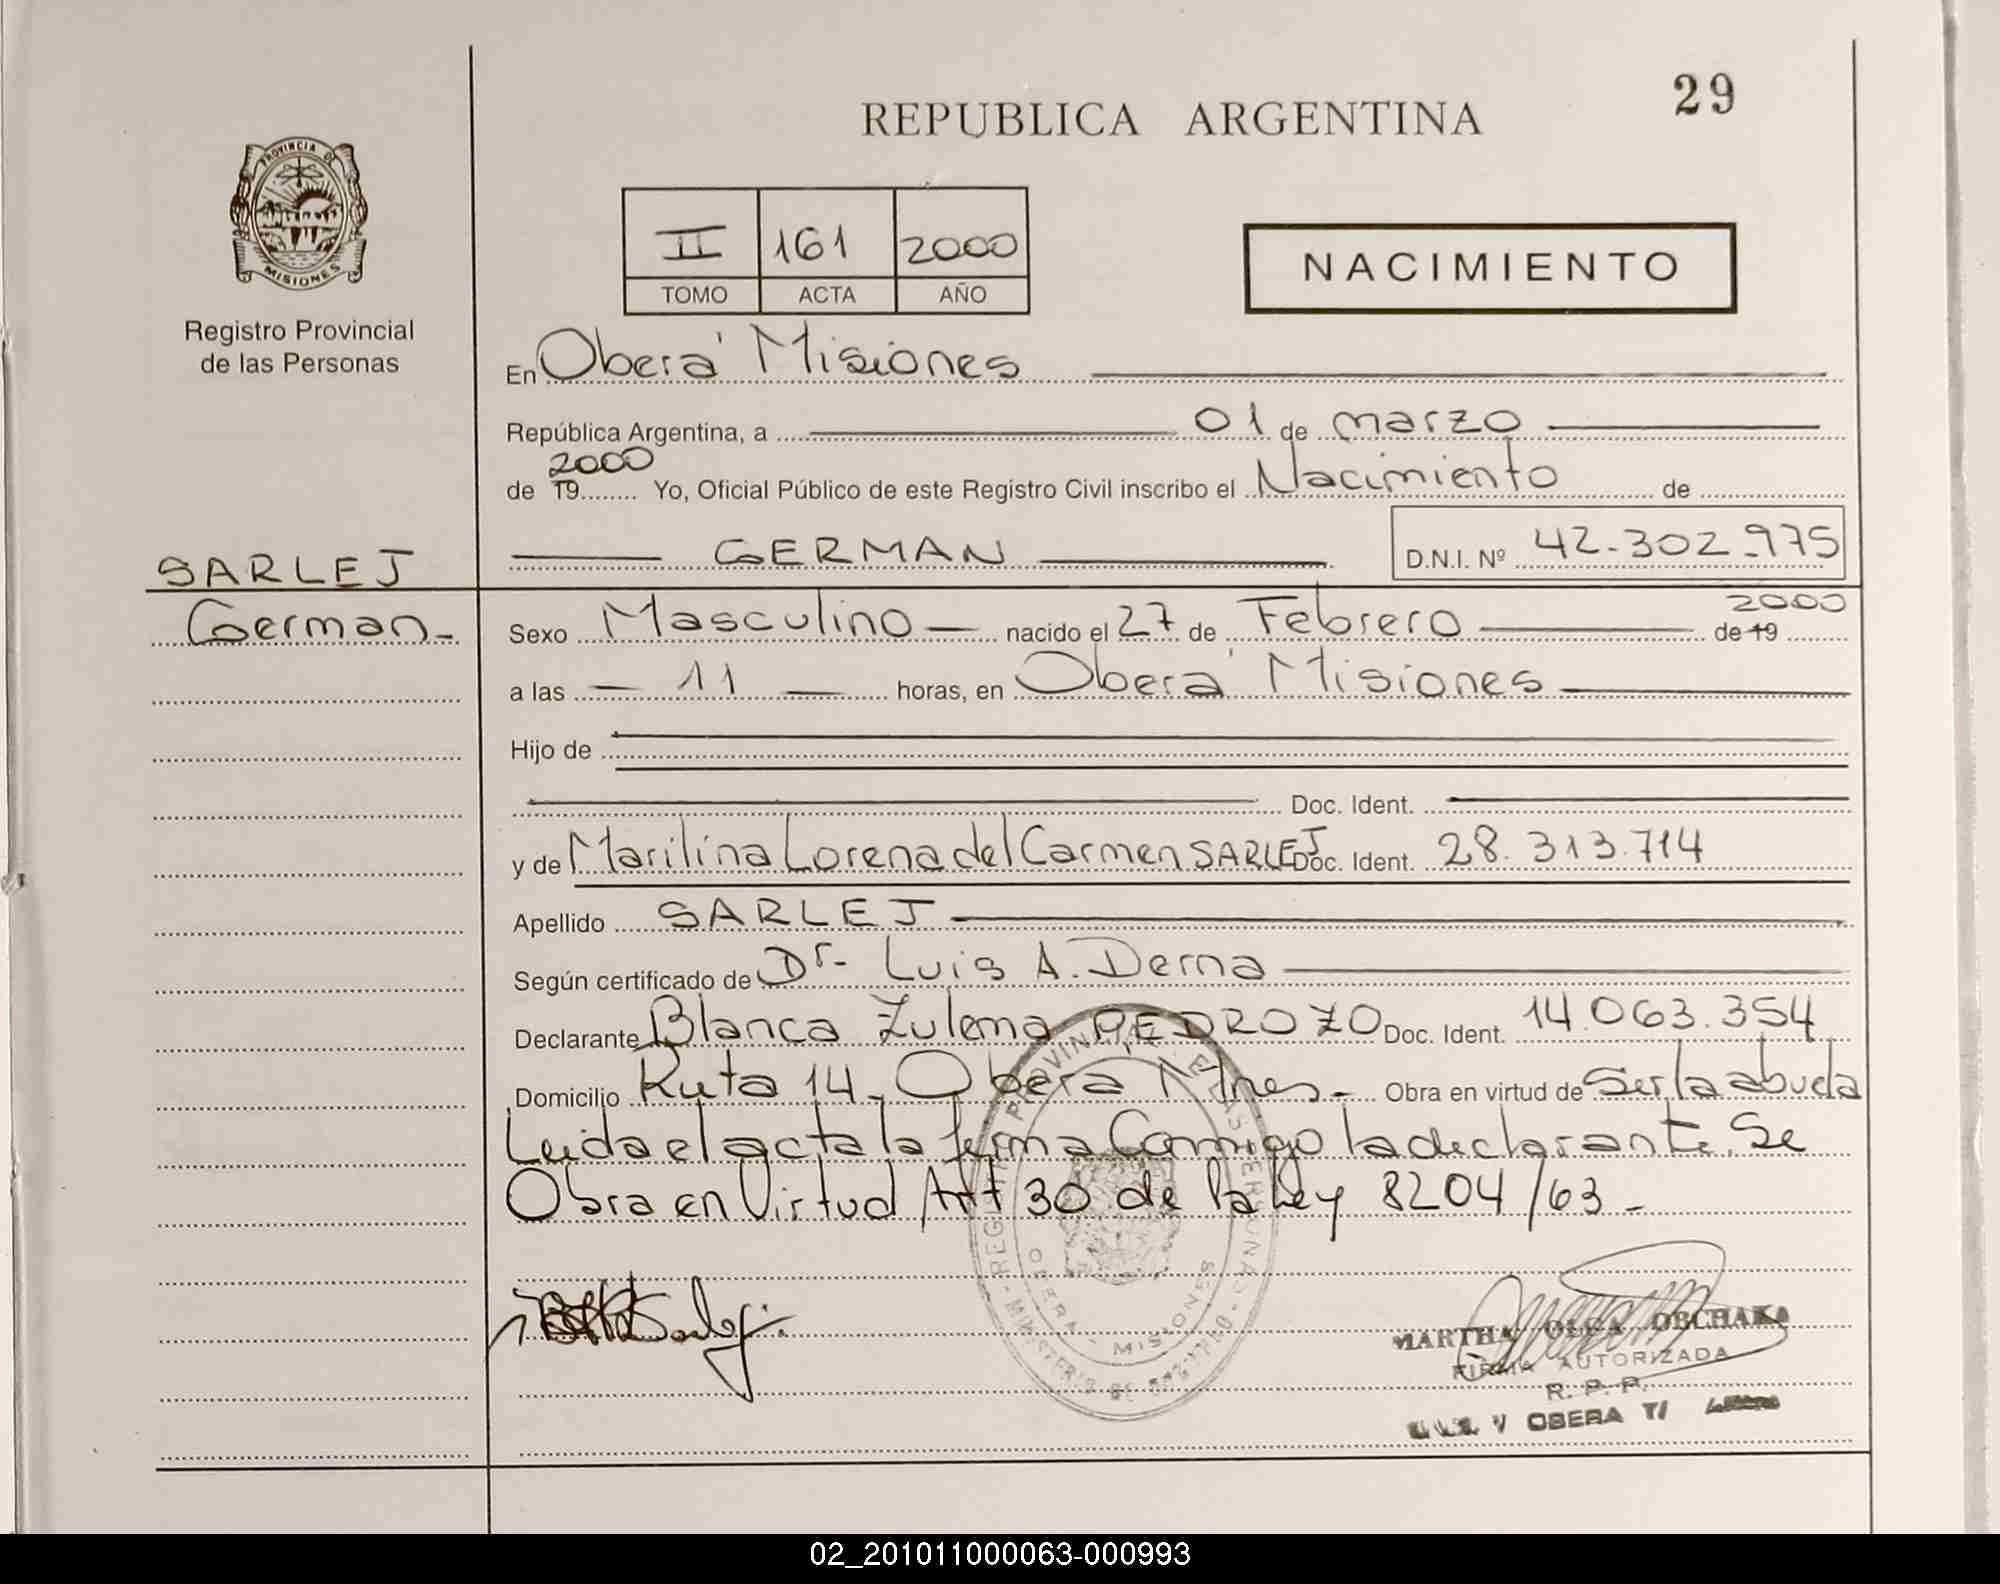 29
REPUBLICA ARGENTINA
PROVINCIA DE
MISIONES
Registro Provincial
de las Personas
II 161 2000
TOMO ACTA AÑO
NACIMIENTO
En Oberá Misiones
República Argentina, a 01 de marzo
2000
de 19 Yo, Oficial Público de este Registro Civil inscribo el Nacimiento de
GERMAN D.N.I. Nº 42.302.975
SARLEJ
German.
2000
Sexo Masculino nacido el 27 de Febrero de 19
a las 11 horas, en Oberá Misiones
Hijo de
Doc. Ident.
y de Marilina Lorena del Carmen SARLEJ Doc. Ident. 28.313.714
Apellido SARLEJ
Según certificado de Dr. Luis A. Derna
Declarante Blanca Zulema PEDROZO Doc. Ident. 14.063.354
Domicilio Ruta 14 - Oberá Mnes. Obra en virtud de Ser la abuela
Leida el acta la firma Conmigo la declarante. Se
Obra en Virtud Art 30 de la Ley 8204/63 -
OBERA - MISIONES
MARTHA OLGA OBCHAKO
FIRMA AUTORIZADA
R. P. P.
OBERA
02_201011000063-000993